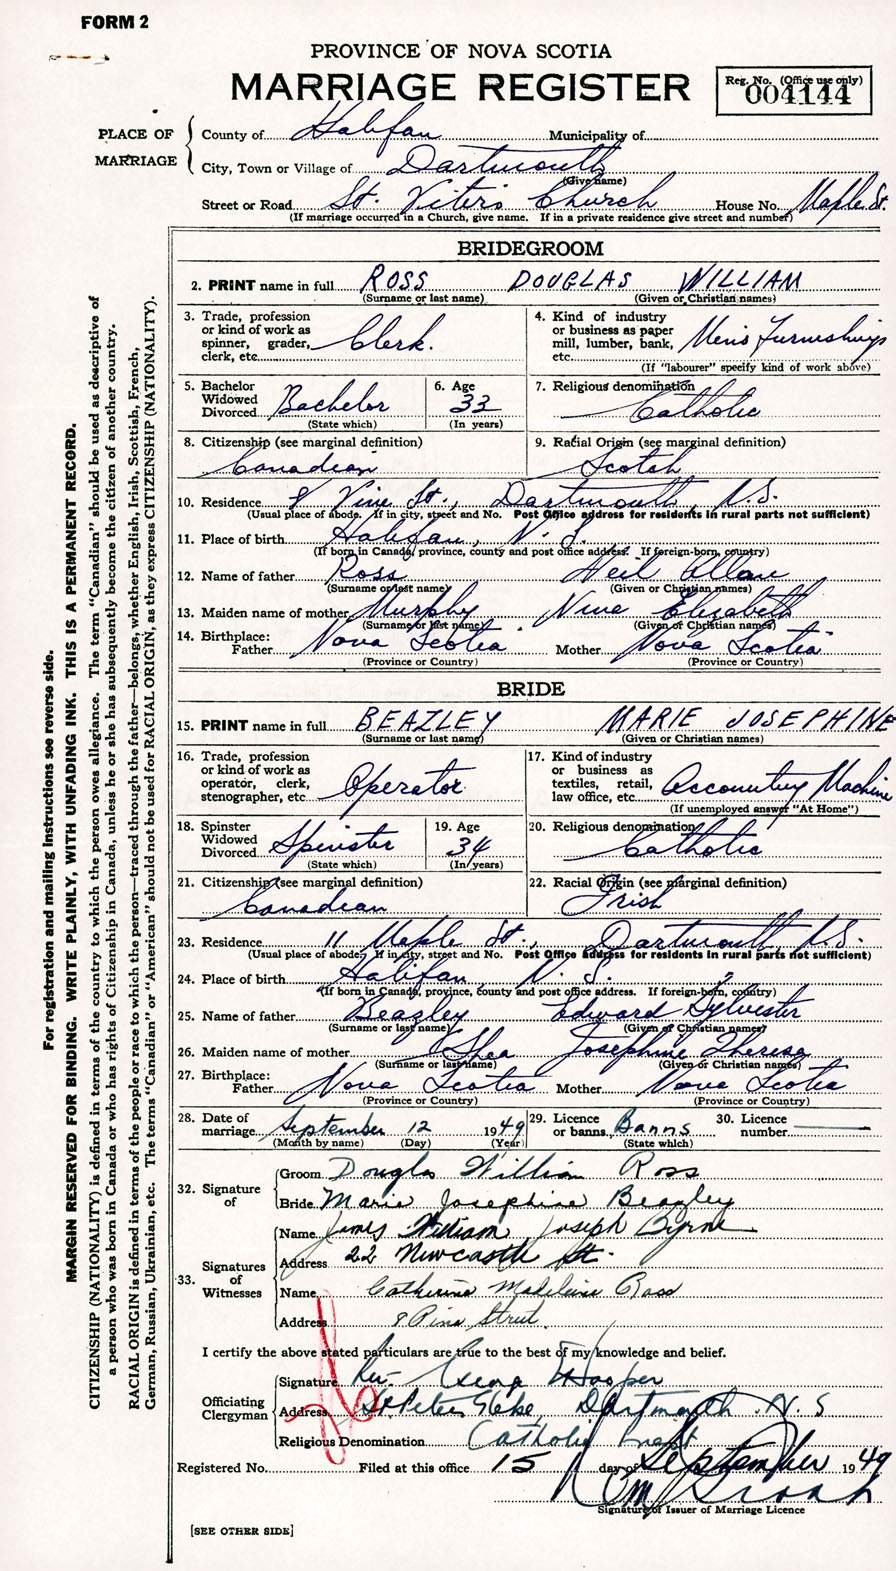 FORM 2
PROVINCE OF NOVA SCOTIA
MARRIAGE REGISTER
Reg. No. (Office use only)
004144
PLACE OF MARRIAGE
County of Halifax Municipality of
City, Town or Village of Dartmouth
(Give name)
Street or Road St. Peter's Church House No. Maple St.
(If marriage occurred in a Church, give name. If in a private residence give street and number)
BRIDEGROOM
2. PRINT name in full ROSS DOUGLAS WILLIAM
(Surname or last name) (Given or Christian names)
3. Trade, profession or kind of work as spinner, grader, clerk, etc. Clerk.
4. Kind of industry or business as paper mill, lumber, bank, etc. Men's Furnishings
(If "labourer" specify kind of work above)
5. Bachelor Widowed Divorced Bachelor
(State which)
6. Age 33
(In years)
7. Religious denomination Catholic
8. Citizenship (see marginal definition) Canadian
9. Racial Origin (see marginal definition) Scotch
10. Residence 8 Pine St., Dartmouth, N.S.
(Usual place of abode. If in city, street and No. Post Office address for residents in rural parts not sufficient)
11. Place of birth Halifax, N. S.
(If born in Canada, province, county and post office address. If foreign-born, country)
12. Name of father Ross Neil Allan
(Surname or last name) (Given or Christian names)
13. Maiden name of mother Murphy Nina Elizabeth
(Surname or last name) (Given or Christian names)
14. Birthplace: Father Nova Scotia Mother Nova Scotia
(Province or Country) (Province or Country)
BRIDE
15. PRINT name in full BEAZLEY MARIE JOSEPHINE
(Surname or last name) (Given or Christian names)
16. Trade, profession or kind of work as operator, clerk, stenographer, etc Operator
17. Kind of industry or business as textiles, retail, law office, etc. Accounting Machine
(If unemployed answer "At Home")
18. Spinster Widowed Divorced Spinster
(State which)
19. Age 34
(In years)
20. Religious denomination Catholic
21. Citizenship (see marginal definition) Canadian
22. Racial Origin (see marginal definition) Irish
23. Residence 11 Maple St., Dartmouth, N.S.
(Usual place of abode. If in city, street and No. Post Office address for residents in rural parts not sufficient)
24. Place of birth Halifax N. S.
(If born in Canada, province, county and post office address. If foreign-born, country)
25. Name of father Beazley Edward Sylvester
(Surname or last name) (Given or Christian names)
26. Maiden name of mother Shea Josephine Theresa
(Surname or last name) (Given or Christian names)
27. Birthplace: Father Nova Scotia Mother Nova Scotia
(Province or Country) (Province or Country)
28. Date of marriage September 12 1949
(Month by name) (Day) (Year)
29. Licence or banns Banns
(State which)
30. Licence number
32. Signature of
Groom Douglas William Ross
Bride Marie Josephine Beazley
33. Signatures of Witnesses
Name James William Joseph Byrne
Address 22 Newcastle St.
Name Catherine Madeleine Ross
Address 8 Pine Street.
I certify the above stated particulars are true to the best of my knowledge and belief.
Officiating Clergyman
Signature Rev. Hooper
Address St Peters Glebe Dartmouth N.S
Religious Denomination Catholic Priest
Registered No. Filed at this office 15 day of September 1949
Signature of Issuer of Marriage Licence
[SEE OTHER SIDE]
For registration and mailing instructions see reverse side.
MARGIN RESERVED FOR BINDING. WRITE PLAINLY, WITH UNFADING INK. THIS IS A PERMANENT RECORD.
CITIZENSHIP (NATIONALITY) is defined in terms of the country to which the person owes allegiance. The term "Canadian" should be used as descriptive of
a person who was born in Canada or who has rights of Citizenship in Canada, unless he or she has subsequently become the citizen of another country.
RACIAL ORIGIN is defined in terms of the people or race to which the person—traced through the father—belongs, whether English, Irish, Scottish, French,
German, Russian, Ukrainian, etc. The terms "Canadian" or "American" should not be used for RACIAL ORIGIN, as they express CITIZENSHIP (NATIONALITY).